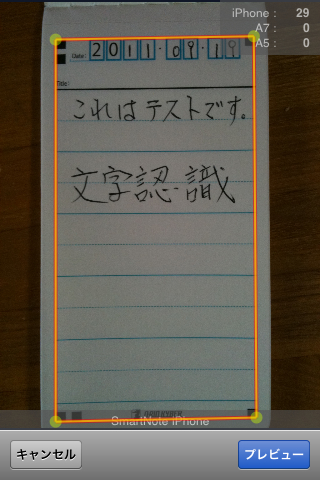 iPhone : 29
A7 : 0
A5 : 0
Date: 2011・09・19
Title:
これはテストです。
文字認識
SmartNote iPhone
キャンセル
プレビュー